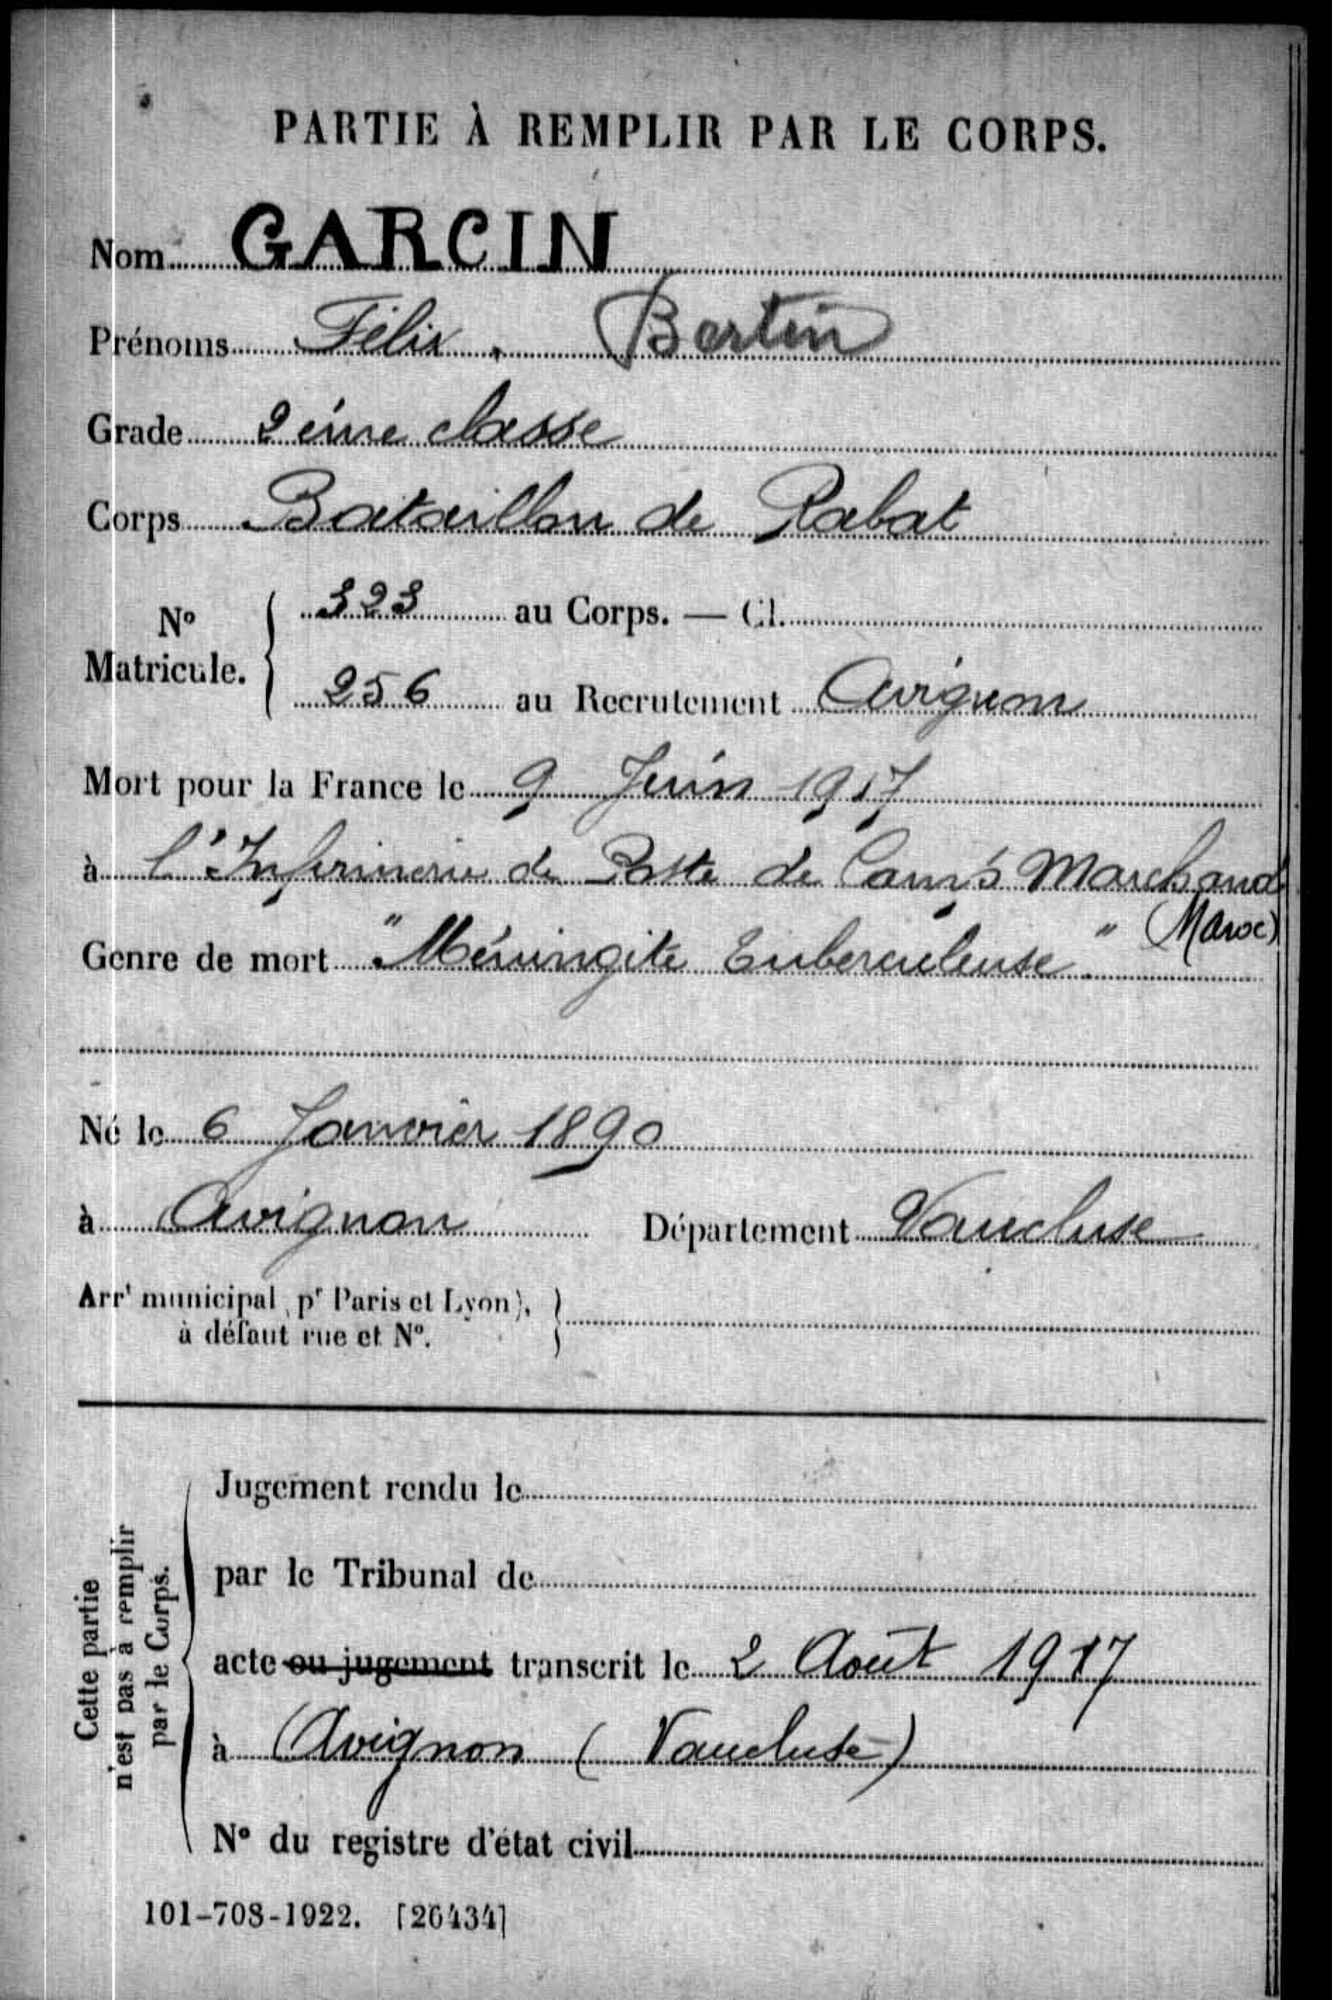 PARTIE À REMPLIR PAR LE CORPS.
Nom GARCIN
Prénoms Félix. Bertin
Grade 2ème classe
Corps Bataillon de Rabat
No Matricule. { 323 au Corps. — Cl.
256 au Recrutement Avignon
Mort pour la France le 9 Juin 1917
à l'Infirmerie de Poste de Camp Marchand
(Maroc)
Genre de mort "Méningite Tuberculeuse"
Né le 6 Janvier 1890
à Avignon Département Vaucluse
Arrt municipal (pr Paris et Lyon), }
à défaut rue et No.
Cette partie
n'est pas à remplir
par le Corps.
Jugement rendu le
par le Tribunal de
acte ou jugement transcrit le 2 Août 1917
à Avignon (Vaucluse)
No du registre d'état civil
101-708-1922. [26434]